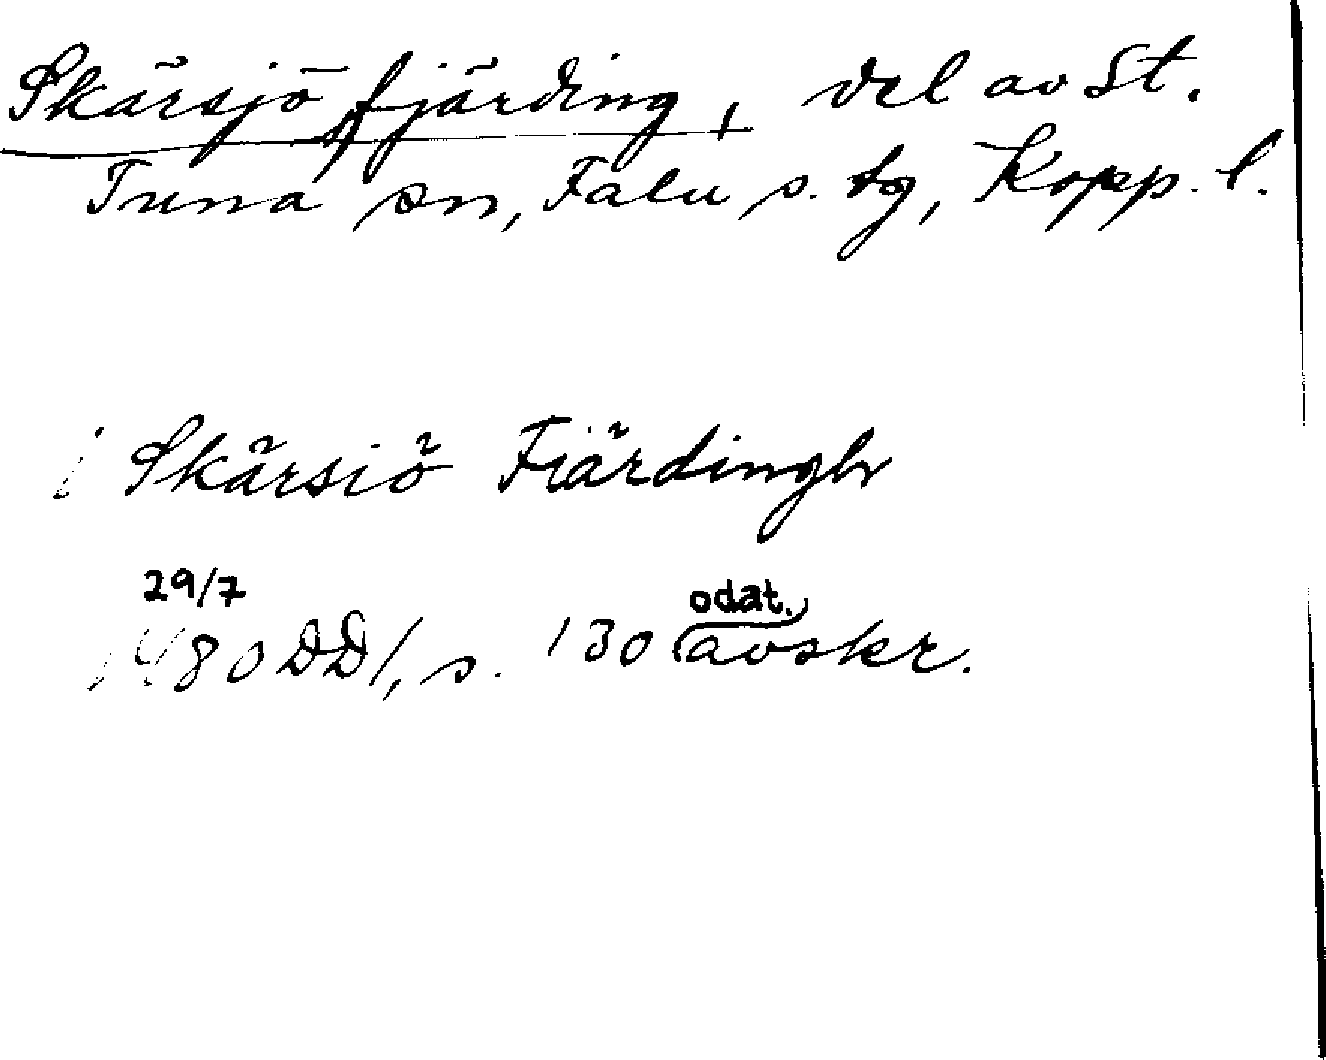 Skärsjö fjärding, del av St.
Tuna sn, Falu s. tg, Kopp. l.
i Skärsiö Fiärdingh
29/7
odat.
1480 DD 1, s. 130 avskr.